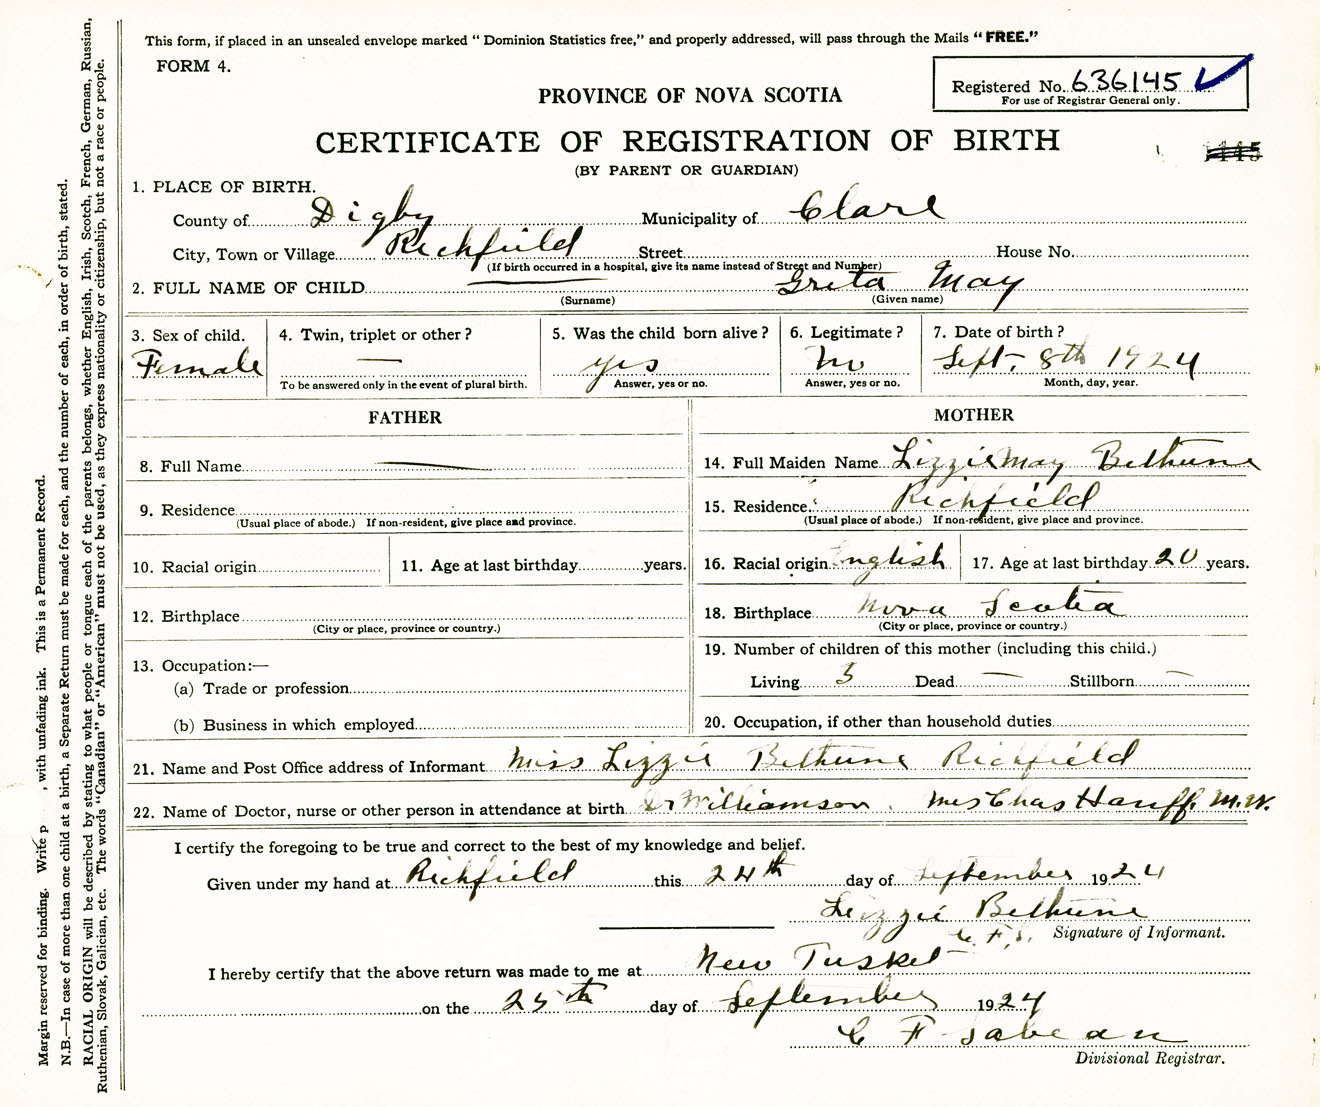 This form, if placed in an unsealed envelope marked " Dominion Statistics free," and properly addressed, will pass through the Mails " FREE."
FORM 4.
Registered No. 636145
For use of Registrar General only.
PROVINCE OF NOVA SCOTIA
CERTIFICATE OF REGISTRATION OF BIRTH
(BY PARENT OR GUARDIAN)
1. PLACE OF BIRTH.
County of Digby Municipality of Clare
City, Town or Village Richfield Street House No.
(If birth occurred in a hospital, give its name instead of Street and Number)
2. FULL NAME OF CHILD Greta May
(Surname) (Given name)
3. Sex of child. 4. Twin, triplet or other ? 5. Was the child born alive ? 6. Legitimate ? 7. Date of birth ?
Female — yes No Sept. 8th 1924
To be answered only in the event of plural birth. Answer, yes or no. Answer, yes or no. Month, day, year.
FATHER
8. Full Name —
9. Residence
(Usual place of abode.) If non-resident, give place and province.
10. Racial origin 11. Age at last birthday years.
12. Birthplace
(City or place, province or country.)
13. Occupation:—
(a) Trade or profession
(b) Business in which employed
MOTHER
14. Full Maiden Name Lizzie May Bethune
15. Residence. Richfield
(Usual place of abode.) If non-resident, give place and province.
16. Racial origin English 17. Age at last birthday 20 years.
18. Birthplace Nova Scotia
(City or place, province or country.)
19. Number of children of this mother (including this child.)
Living 3 Dead — Stillborn —
20. Occupation, if other than household duties
21. Name and Post Office address of Informant Miss Lizzie Bethune Richfield
22. Name of Doctor, nurse or other person in attendance at birth Dr Williamson. Mrs Chas Hanff. M.W.
I certify the foregoing to be true and correct to the best of my knowledge and belief.
Given under my hand at Richfield this 24th day of September 1924
Lizzie Bethune
C. F. S. Signature of Informant.
I hereby certify that the above return was made to me at New Tusket
on the 25th day of September 1924
C F Sabean
Divisional Registrar.
Margin reserved for binding. Write p , with unfading ink. This is a Permanent Record.
N.B.—In case of more than one child at a birth, a Separate Return must be made for each, and the number of each, in order of birth, stated.
RACIAL ORIGIN will be described by stating to what people or tongue each of the parents belongs, whether English, Irish, Scotch, French, German, Russian,
Ruthenian, Slovak, Galician, etc. The words "Canadian" or "American" must not be used, as they express nationality or citizenship, but not a race or people.